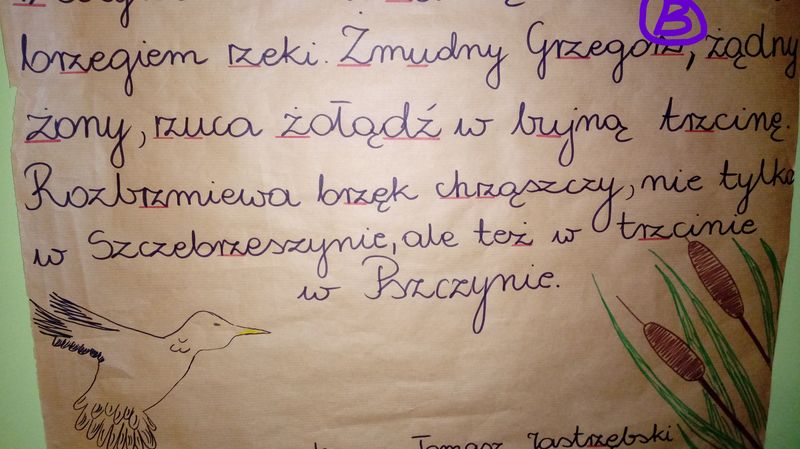 B
brzegiem rzeki. Żmudny Grzegorz, żądny
żony, rzuca żołądź w bujną trzcinę.
Rozbrzmiewa brzęk chrząszczy, nie tylko
w Szczebrzeszynie, ale też w trzcinie
w Pszczynie.
Tomasz Jastrzębski